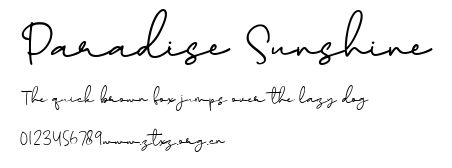 Paradise Sunshine
The quick brown fox jumps over the lazy dog
0123456789www.ztxz.org.cn